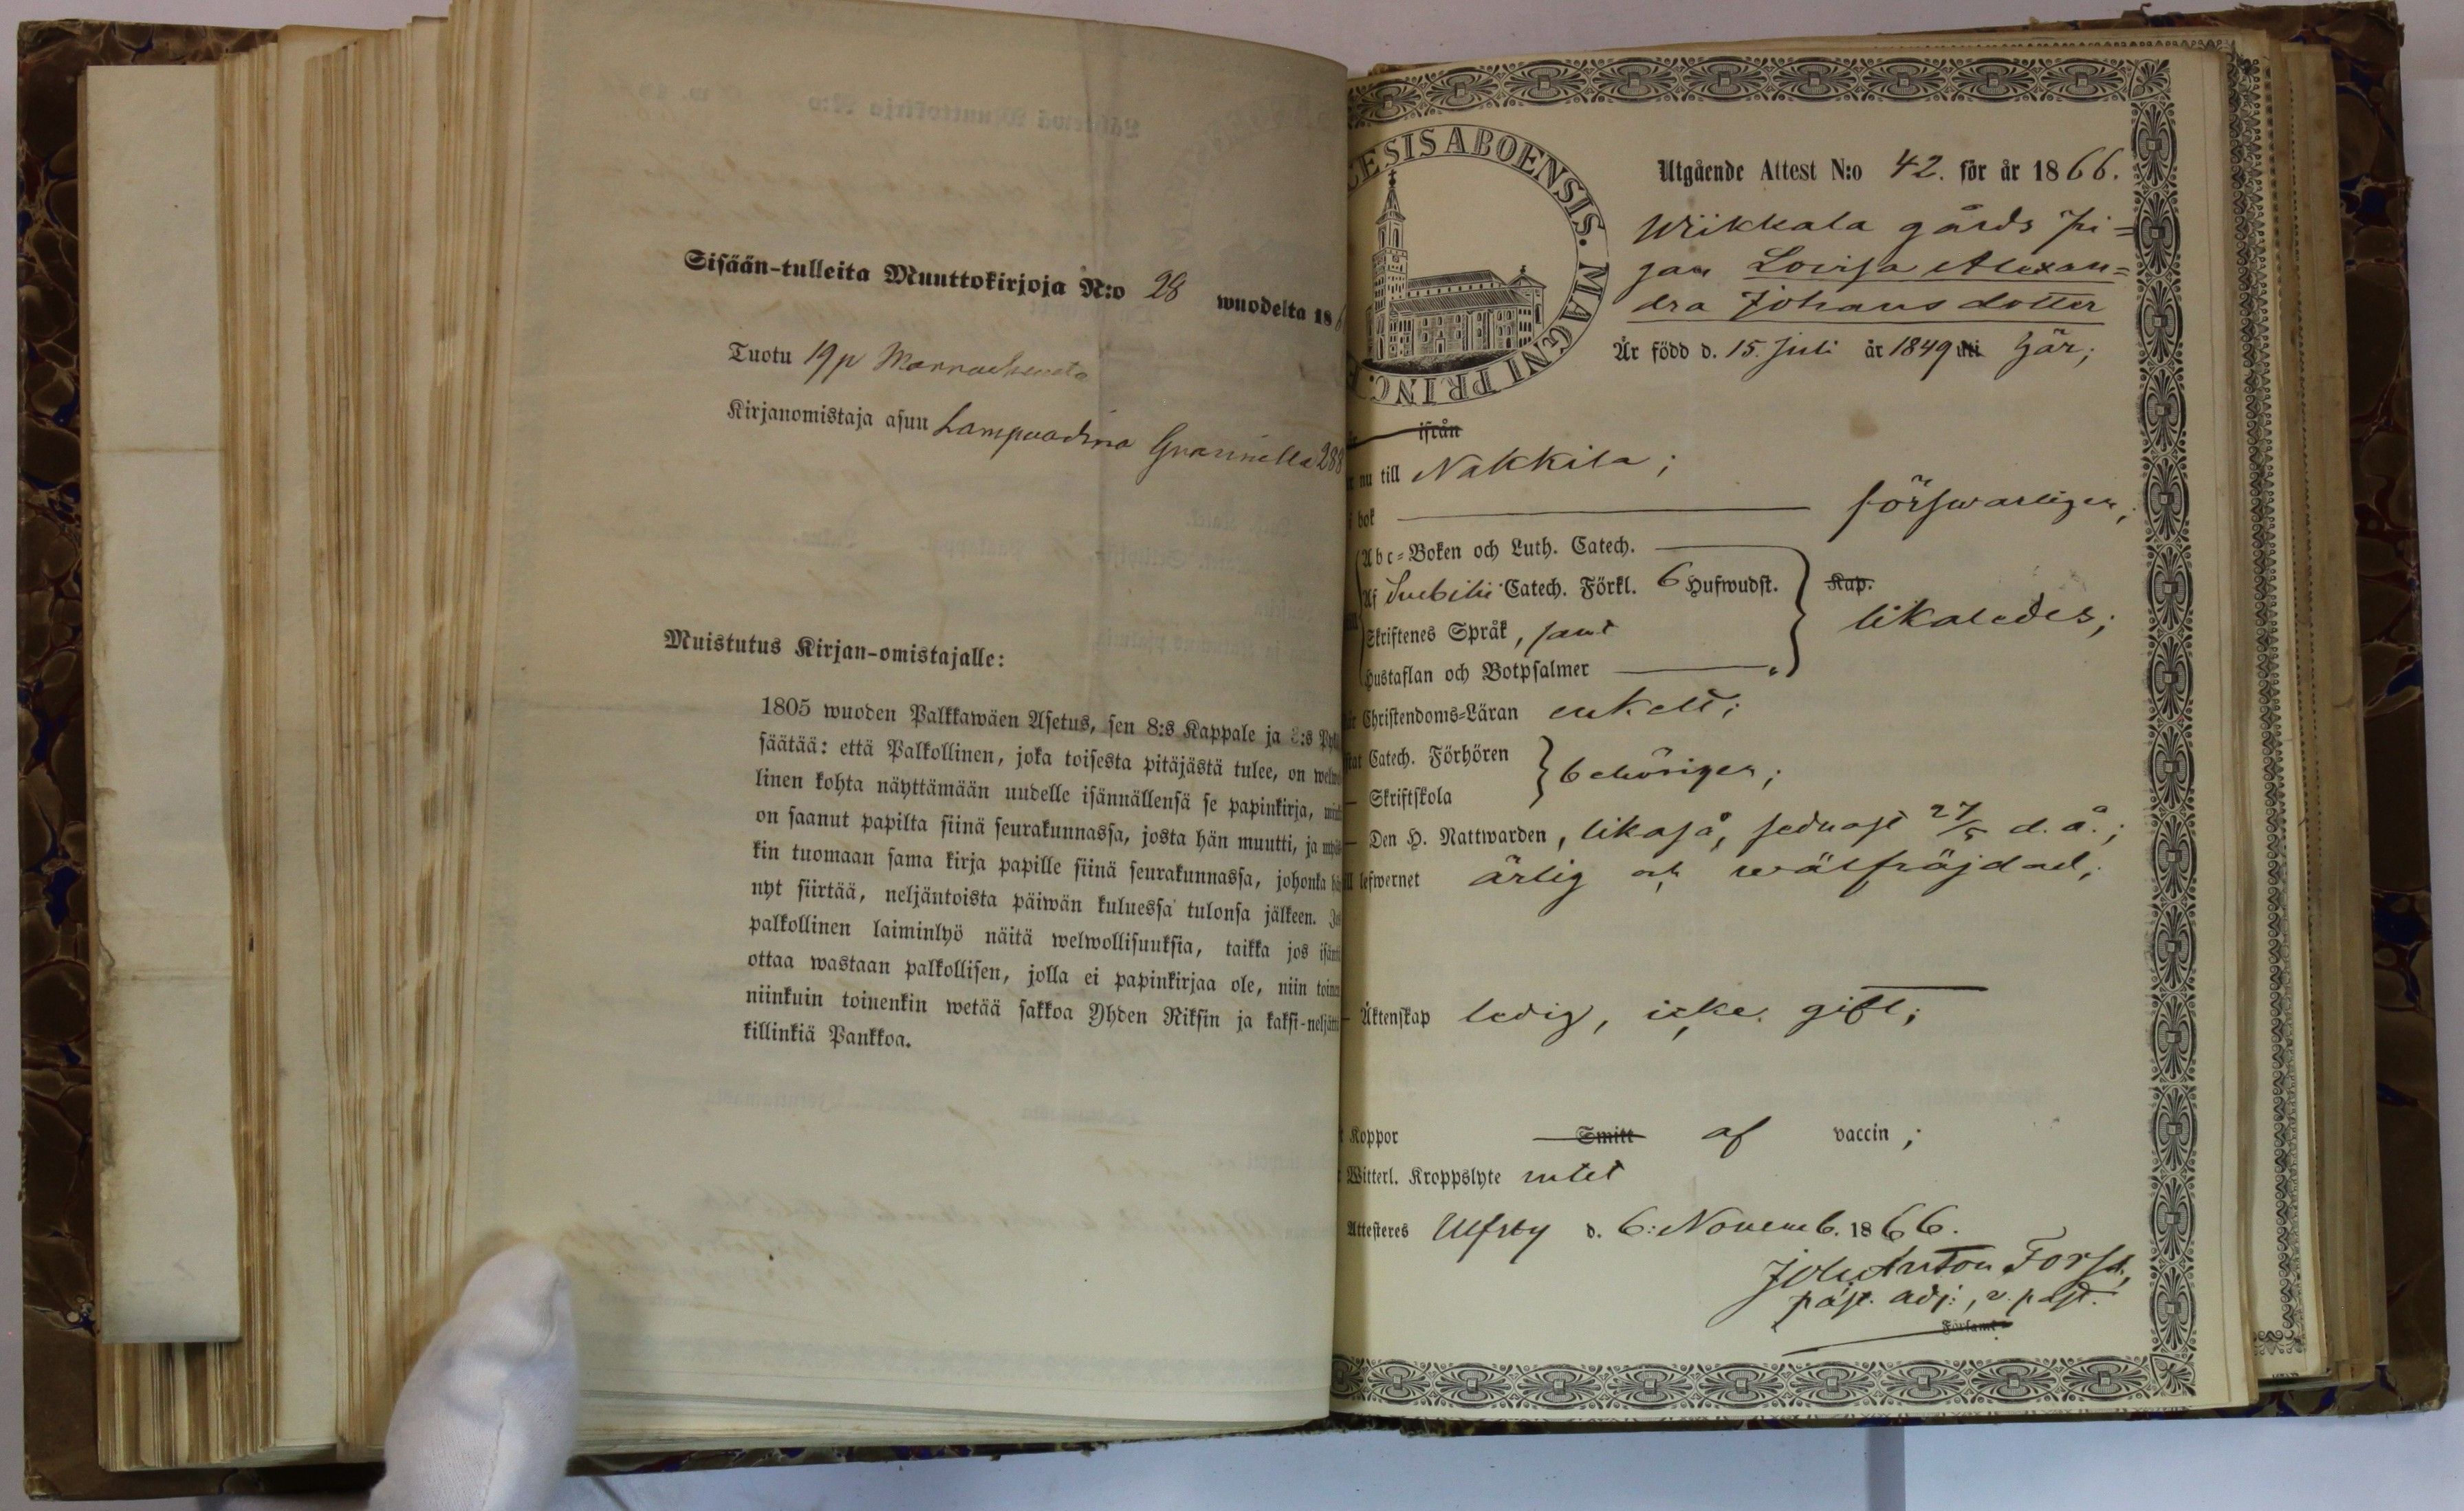 Sisään-tulleita Muuttokirjoja N:o 28 wuodelta 186
Tuotu 19 p Marraskuuta
Kirjanomistaja asuu
288
Muistutus Kirjan-omistajalle:
1805 wuoden Palkkawäen Asetus, sen 8:s Kappale ja
säätää: että Palkollinen, joka toisesta pitäjästä tulee, on welwol
linen kohta näyttämään uudelle isännällensä se papinkirja,
on saanut papilta siinä seurakunnassa, josta hän muutti, ja myös
kin tuomaan sama kirja papille siinä seurakunnassa, johonka
nyt siirtää, neljäntoista päiwän kuluessa tulonsa jälkeen. Jos
palkollinen laiminlyö näitä welwollisuuksia, taikka jos isäntä
ottaa wastaan palkollisen, jolla ei papinkirjaa ole, niin toinen
niinkuin toinenkin wetää sakkoa Yhden Riksin ja kaksi-neljättä
killinkiä Pankkoa.
CESIS ABOENSIS. MAGNI PRINC.
Utgående Attest N:o 42. för år 1866.
Wiikkala gårds pi=
gan Lovisa Alexan=
dra Johansdotter
Är född d. 15. Juli år 1849 uti här;
ifrån
nu till Nakkila;
bok försvarligen,
Abc=Boken och Luth. Catech.
Af Svebilii Catech. Förkl. 6 Hufwudst. Kap.
Skriftenes Språk, samt likaledes;
Hustaflan och Botpsalmer
Christendoms=Läran enkelt;
Catech. Förhören behörigen;
— Skriftskola
— Den H. Nattwarden, likaså, sednast 27/5 d. å.;
lefwernet ärlig och wälfräjdad;
Äktenskap ledig, icke gift;
Koppor Smitt af vaccin;
Witterl. Kroppslyte intet
Attesteres Ulfsby d. 6: Novemb. 1866.
Joh Anton Forss,
past. adj:, v. past.
Församl